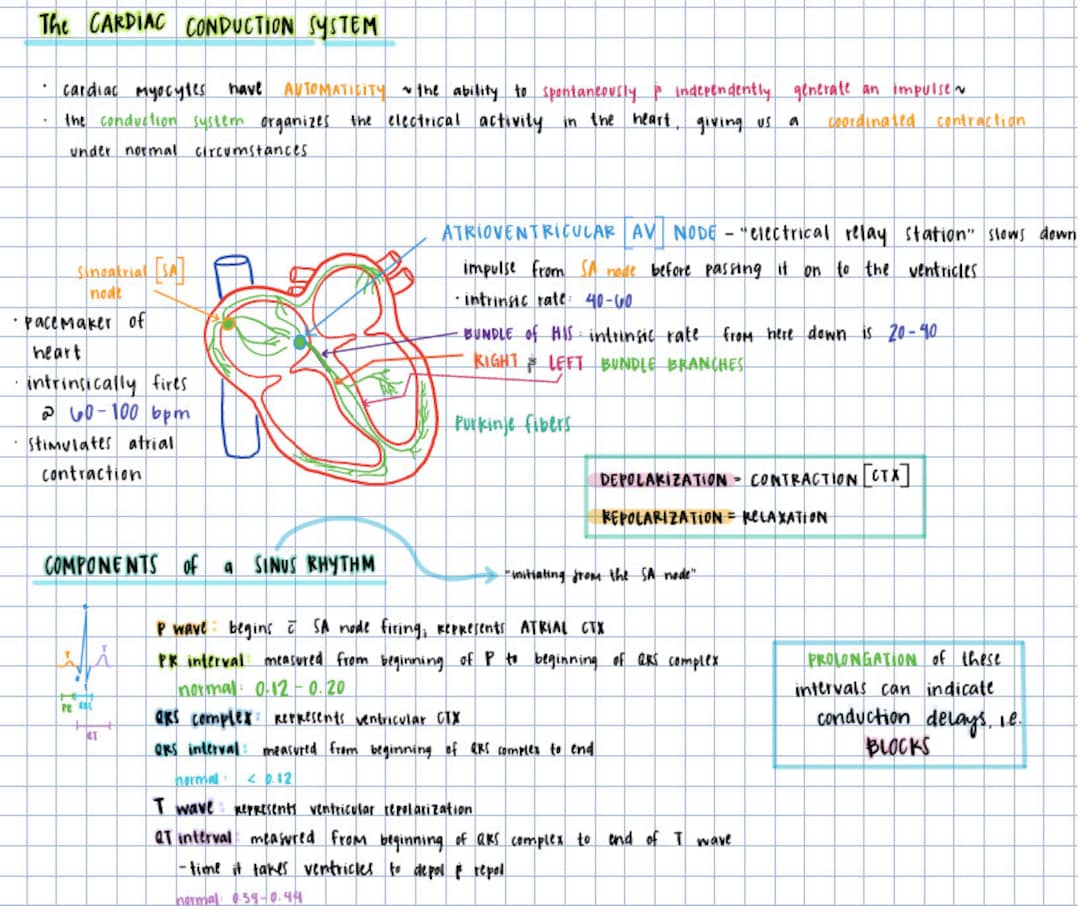 The CARDIAC CONDUCTION SYSTEM
· cardiac myocytes have AUTOMATICITY ~ the ability to spontaneously & independently generate an impulse ~
· the conduction system organizes the electrical activity in the heart, giving us a coordinated contraction
under normal circumstances
ATRIOVENTRICULAR [AV] NODE - "electrical relay station" slows down
impulse from SA node before passing it on to the ventricles
· intrinsic rate: 40-60
BUNDLE of HIS: intrinsic rate from here down is 20-40
RIGHT & LEFT BUNDLE BRANCHES
Purkinje fibers
Sinoatrial [SA]
node
· pacemaker of
heart
· intrinsically fires
@ 60-100 bpm
· stimulates atrial
contraction
DEPOLARIZATION = CONTRACTION [CTX]
REPOLARIZATION = RELAXATION
COMPONENTS of a SINUS RHYTHM
"initiating from the SA node"
P wave: begins c̄ SA node firing; represents ATRIAL CTX
PR interval: measured from beginning of P to beginning of QRS complex
normal: 0.12 - 0.20
QRS complex: represents ventricular CTX
QRS interval: measured from beginning of QRS complex to end
normal: < 0.12
T wave: represents ventricular repolarization
QT interval: measured from beginning of QRS complex to end of T wave
- time it takes ventricles to depol & repol
normal: 0.34-0.44
P
T
PR
QT
PROLONGATION of these
intervals can indicate
conduction delays, i.e.
BLOCKS